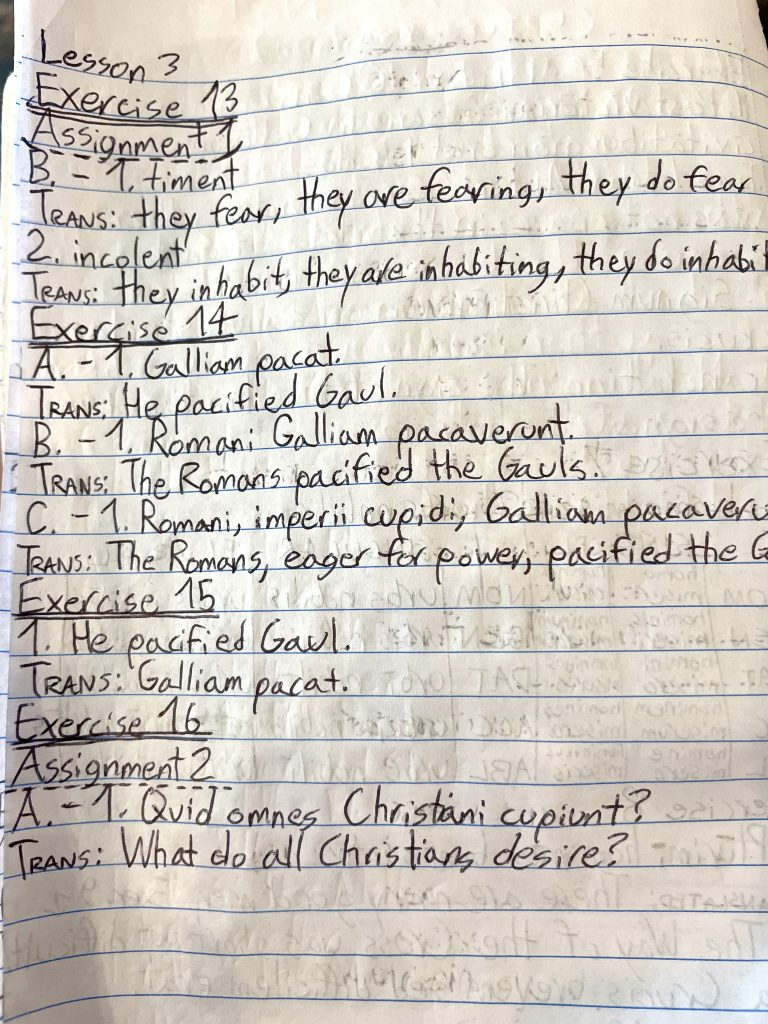 Lesson 3
Exercise 13
Assignment 1
B. - 1. timent
TRANS: they fear, they are fearing, they do fear
2. incolent
TRANS: they inhabit, they are inhabiting, they do inhabit
Exercise 14
A. - 1. Galliam pacat.
TRANS: He pacified Gaul.
B. - 1. Romani Galliam pacaverunt.
TRANS: The Romans pacified the Gauls.
C. - 1. Romani, imperii cupidi, Galliam pacaveru
TRANS: The Romans, eager for power, pacified the G
Exercise 15
1. He pacified Gaul.
TRANS: Galliam pacat.
Exercise 16
Assignment 2
A. - 1. Quid omnes Christiani cupiunt?
TRANS: What do all Christians desire?